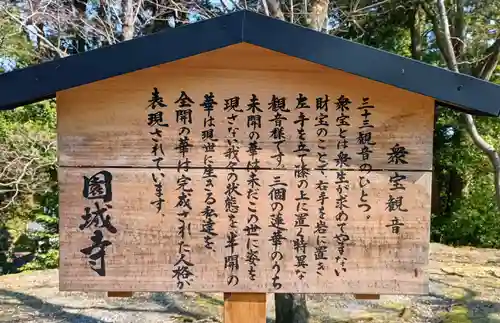 衆宝観音
三十三観音のひとつ。
衆宝とは衆生が求めてやまない
財宝のことで、右手を岩に置き
左手を立て膝の上に置く特異な
観音様です。三個の蓮華のうち
未開の華は未だこの世に姿を
現さない我々の状態を半開の
華は現世に生きる私達を
全開の華は完成された人格を
表現しています。
圓城寺